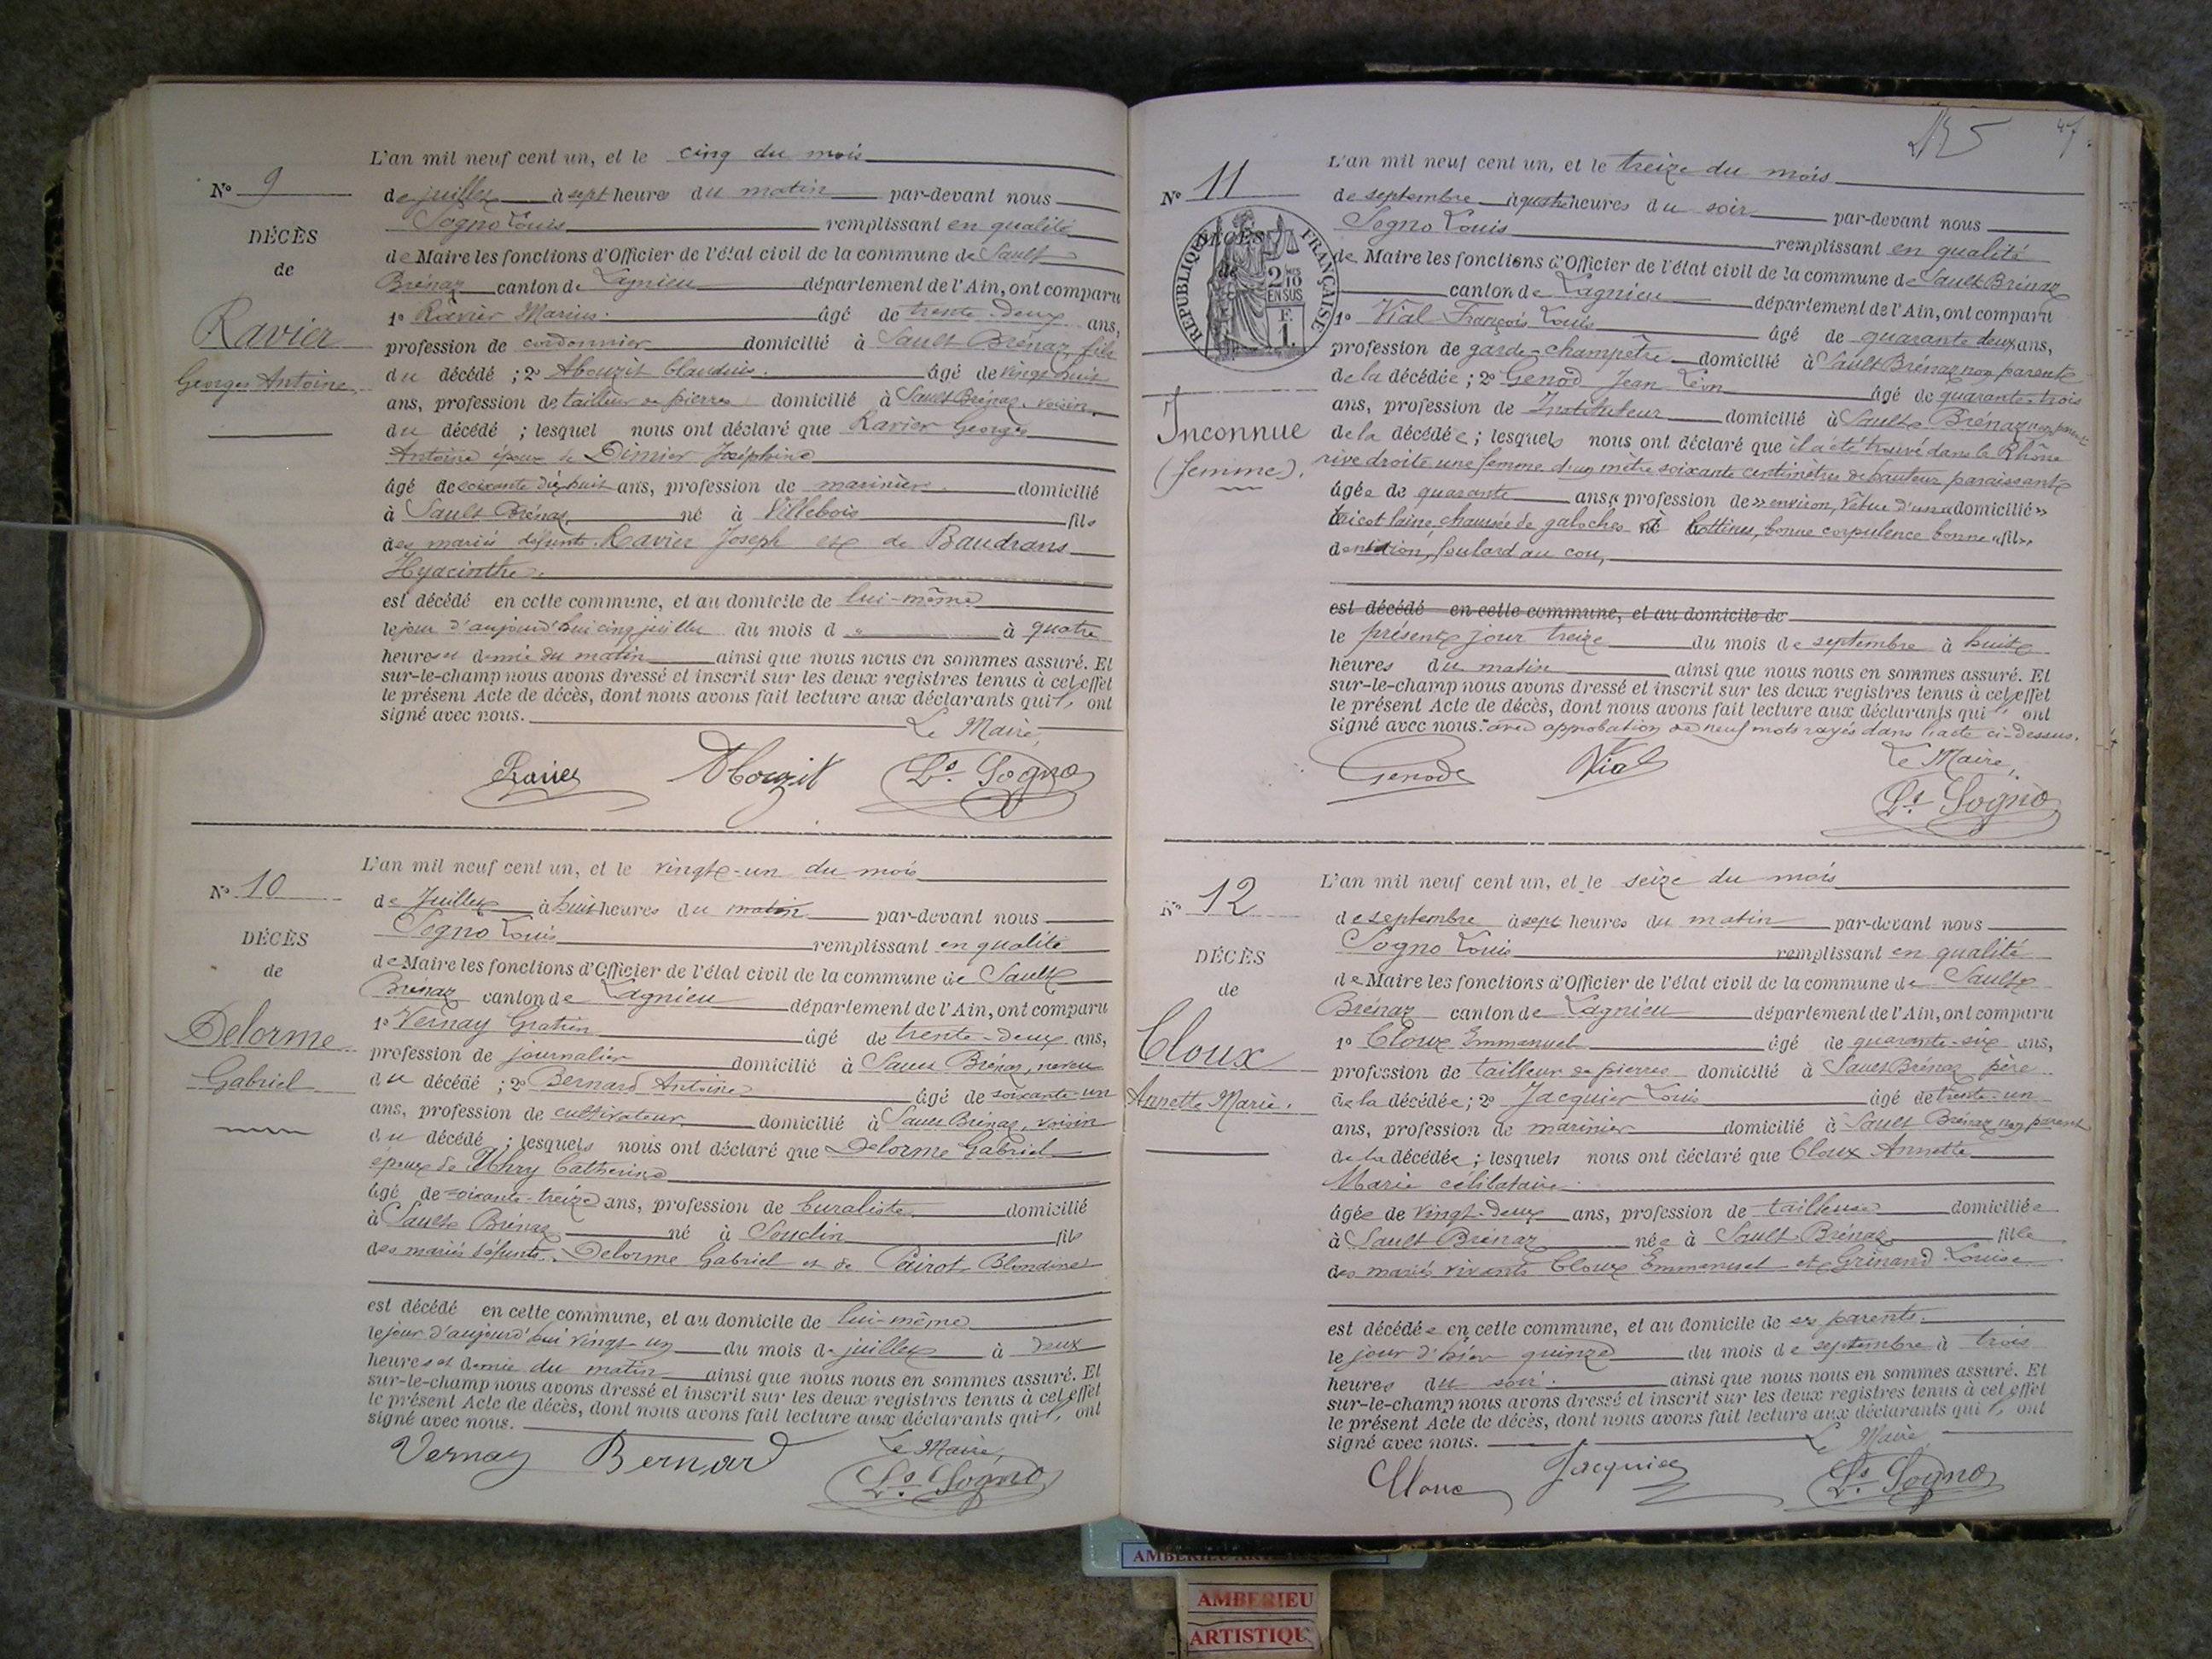 L'an mil neuf cent un, et le cinq du mois
N° 9
de juillet à sept heures du matin par-devant nous
Sogno Louis remplissant en qualité
DÉCÈS
de Maire les fonctions d'Officier de l'état civil de la commune de Sault
de
Brénaz canton de Lagnieu département de l'Ain, ont comparu
1° Ravier Marius âgé de trente-deux ans,
Ravier
profession de cordonnier domicilié à Sault Brénaz, fils
Georges Antoine
du décédé ; 2° Abouzit Claudius âgé de vingt huit
ans, profession de tailleur de pierres domicilié à Sault Brénaz, voisin
du décédé ; lesquel nous ont déclaré que Ravier Georges
Antoine époux de Dimier Joséphine
âgé de soixante dix huit ans, profession de marinier domicilié
à Sault Brénaz né à Villebois fils
des mariés défunts Ravier Joseph et de Baudrans
Hyacinthe
est décédé en cette commune, et au domicile de lui-même
le jour d'aujourd'hui cinq juillet du mois d " à quatre
heures et demie du matin ainsi que nous nous en sommes assuré. Et
sur-le-champ nous avons dressé et inscrit sur les deux registres tenus à cet effet
le présent Acte de décès, dont nous avons fait lecture aux déclarants qui ont
signé avec nous.
Le Maire,
Ravier Abouzit Ls Sogno
L'an mil neuf cent un, et le vingt-un du mois
N° 10
de Juillet à huit heures du matin par-devant nous
Sogno Louis remplissant en qualité
DÉCÈS
de Maire les fonctions d'Officier de l'état civil de la commune de Sault
de
Brénaz canton de Lagnieu département de l'Ain, ont comparu
1° Vernay Gratien âgé de trente-deux ans,
Delorme
profession de journalier domicilié à Sault Brénaz, neveu
Gabriel
du décédé ; 2° Bernard Antoine âgé de soixante-un
ans, profession de cultivateur domicilié à Sault Brénaz, voisin
du décédé ; lesquels nous ont déclaré que Delorme Gabriel
époux de Catherine
âgé de soixante-treize ans, profession de buraliste domicilié
à Sault Brénaz né à Souclin fils
des mariés défunts Delorme Gabriel et de Pairot Blondine
est décédé en cette commune, et au domicile de lui-même
le jour d'aujourd'hui vingt-un du mois de juillet à deux
heures et demie du matin ainsi que nous nous en sommes assuré. Et
sur-le-champ nous avons dressé et inscrit sur les deux registres tenus à cet effet
le présent Acte de décès, dont nous avons fait lecture aux déclarants qui ont
signé avec nous.
Vernay Bernard Le Maire,
Ls Sogno
47
L'an mil neuf cent un, et le treize du mois
N° 11
de septembre à quatre heures du soir par-devant nous
Sogno Louis remplissant en qualité
DÉCÈS
de
RÉPUBLIQUE FRANÇAISE
2/10 EN SUS
F. 1.
de Maire les fonctions d'Officier de l'état civil de la commune de Sault Brénaz
canton de Lagnieu département de l'Ain, ont comparu
1° Vial François Louis âgé de quarante deux ans,
profession de garde-champêtre domicilié à Sault Brénaz non parent
de la décédée ; 2° Genod Jean Léon âgé de quarante-trois
ans, profession de Instituteur domicilié à Sault Brénaz non parent
Inconnue
(femme).
de la décédée ; lesquels nous ont déclaré que il a été trouvé dans le Rhône
rive droite une femme d'un mètre soixante centimètres de hauteur paraissant
âgée de quarante ans profession de » environ, Vêtue d'un domicilié »
tricot laine, chaussée de galoches bottines, bonne corpulence bonne fil
dentition, foulard au cou,
est décédé en cette commune, et au domicile de
le présent jour treize du mois de septembre à huit
heures du matin ainsi que nous nous en sommes assuré. Et
sur-le-champ nous avons dressé et inscrit sur les deux registres tenus à cet effet
le présent Acte de décès, dont nous avons fait lecture aux déclarants qui ont
signé avec nous. avec approbation de neuf mots rayés dans l'acte ci-dessus.
Genod Vial Le Maire,
Ls Sogno
L'an mil neuf cent un, et le seize du mois
N° 12
de septembre à sept heures du matin par-devant nous
Sogno Louis remplissant en qualité
DÉCÈS
de Maire les fonctions d'Officier de l'état civil de la commune de Sault
de
Brénaz canton de Lagnieu département de l'Ain, ont comparu
1° Cloux Emmanuel âgé de quarante-six ans,
Cloux
profession de tailleur de pierres domicilié à Sault Brénaz père
Annette Marie.
de la décédée ; 2° Jacquier Louis âgé de trente-un
ans, profession de marinier domicilié à Sault Brénaz non parent
de la décédée ; lesquels nous ont déclaré que Cloux Annette
Marie célibataire
âgée de vingt-deux ans, profession de tailleuse domiciliée
à Sault Brénaz née à Sault-Brénaz fille
des mariés vivants Cloux Emmanuel et Grinand Louise
est décédée en cette commune, et au domicile de ses parents.
le jour d'hier quinze du mois de septembre à trois
heures du soir. ainsi que nous nous en sommes assuré. Et
sur-le-champ nous avons dressé et inscrit sur les deux registres tenus à cet effet
le présent Acte de décès, dont nous avons fait lecture aux déclarants qui ont
signé avec nous.
Le Maire
Cloux Jacquier Ls Sogno
AMBERIEU
ARTISTIQU